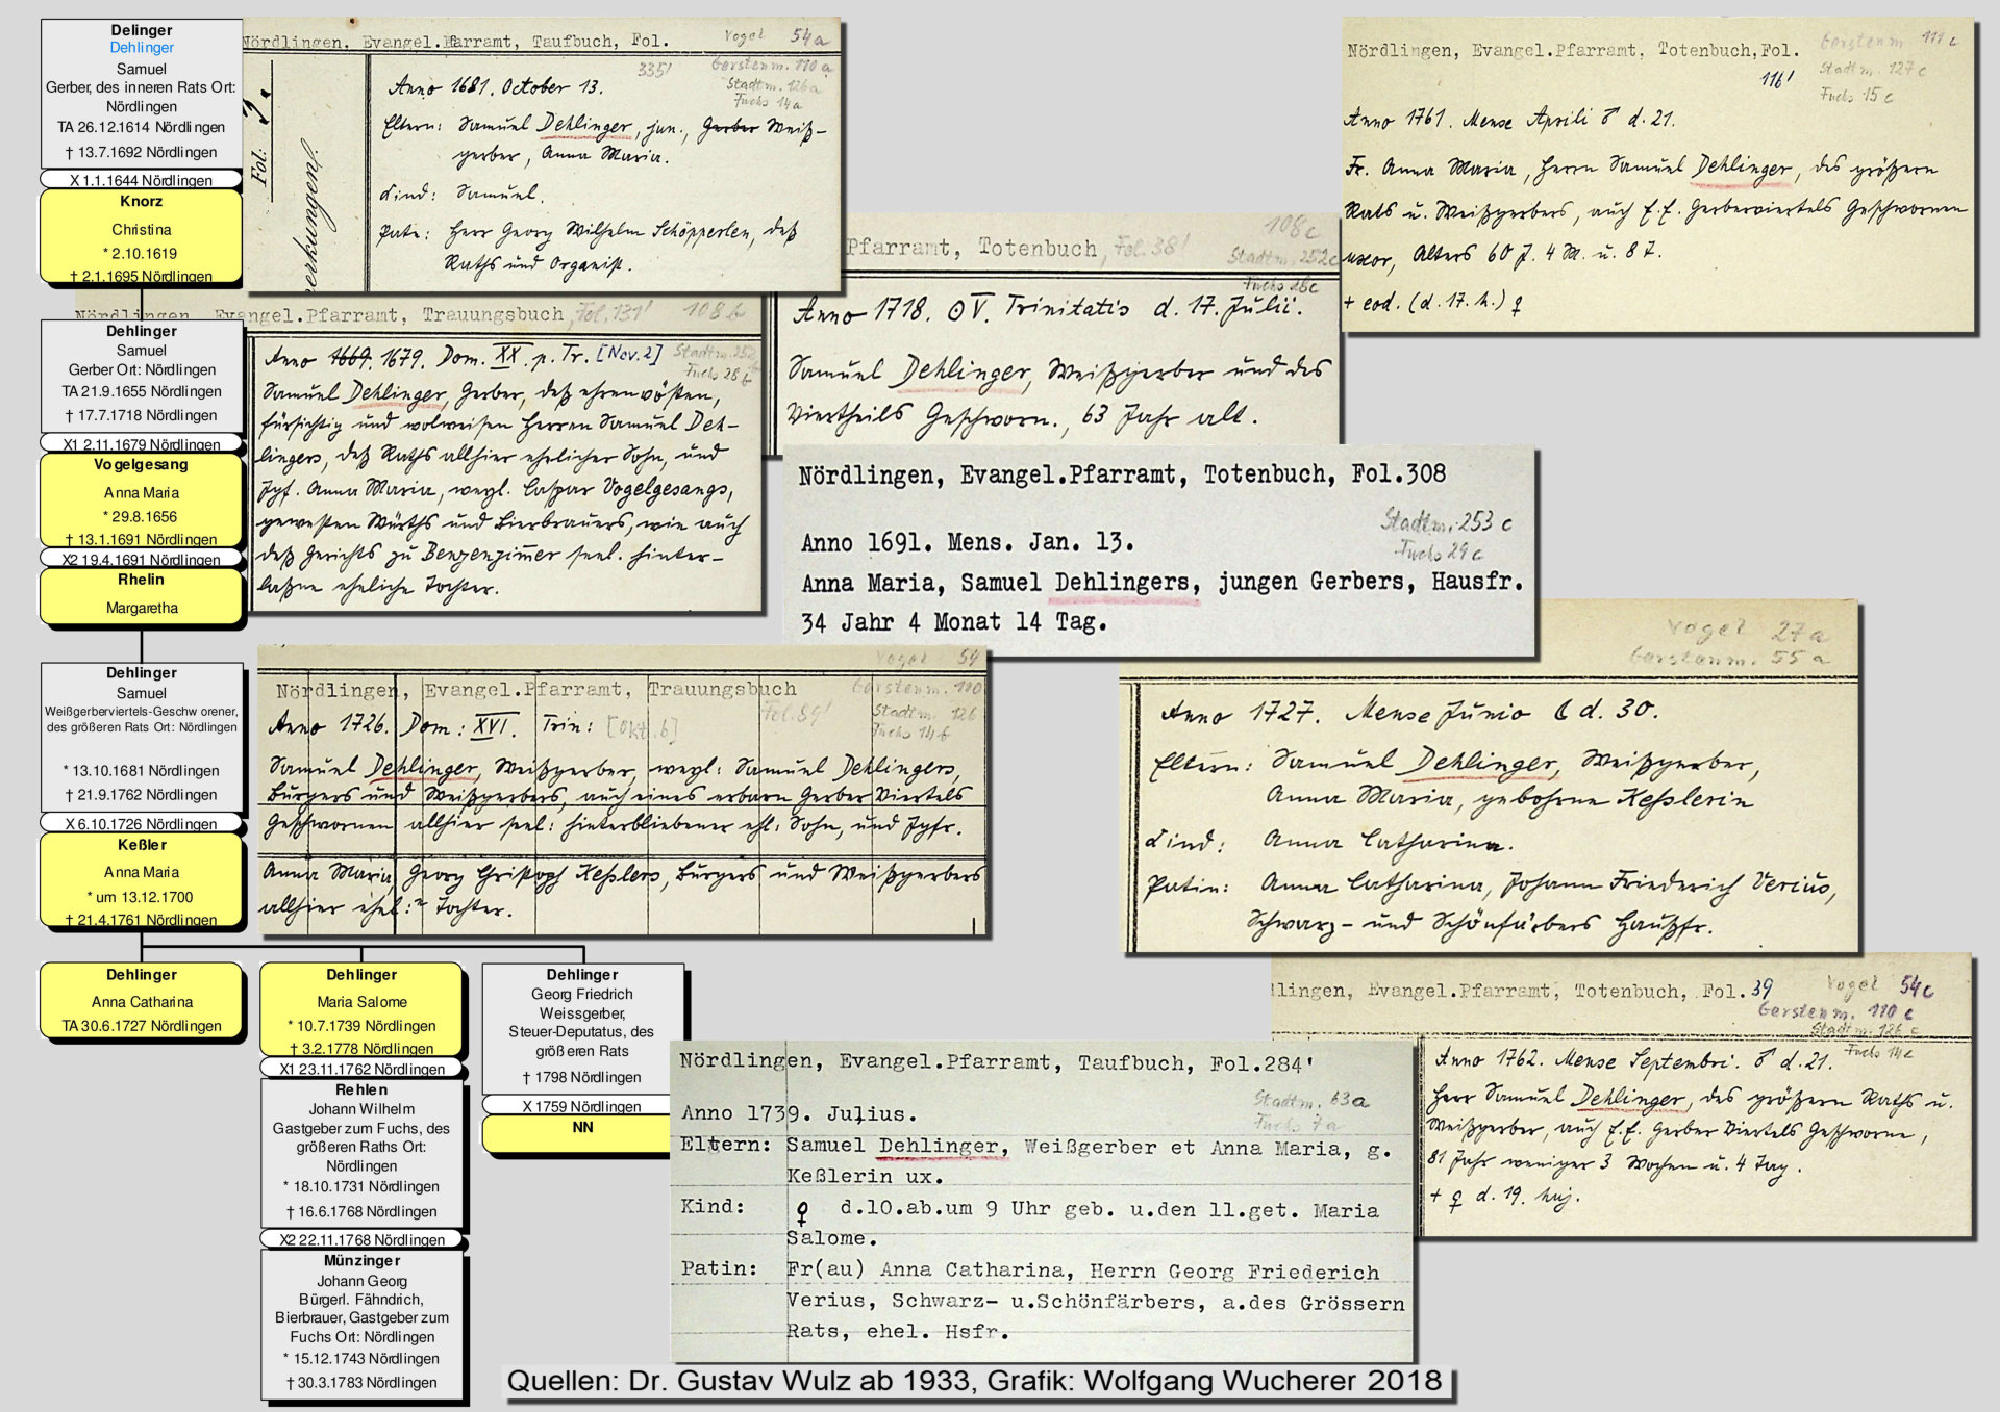 Delinger
Dehlinger
Samuel
Gerber, des inneren Rats Ort:
Nördlingen
TA 26.12.1614 Nördlingen
† 13.7.1692 Nördlingen
X 1.1.1644 Nördlingen
Knorz
Christina
* 2.10.1619
† 2.1.1695 Nördlingen
Dehlinger
Samuel
Gerber Ort: Nördlingen
TA 21.9.1655 Nördlingen
† 17.7.1718 Nördlingen
X1 2.11.1679 Nördlingen
Vogelgesang
Anna Maria
* 29.8.1656
† 13.1.1691 Nördlingen
X2 19.4.1691 Nördlingen
Rhelin
Margaretha
Dehlinger
Samuel
Weißgerberviertels-Geschworener,
des größeren Rats Ort: Nördlingen
* 13.10.1681 Nördlingen
† 21.9.1762 Nördlingen
X 6.10.1726 Nördlingen
Keßler
Anna Maria
* um 13.12.1700
† 21.4.1761 Nördlingen
Dehlinger
Anna Catharina
TA 30.6.1727 Nördlingen
Dehlinger
Maria Salome
* 10.7.1739 Nördlingen
† 3.2.1778 Nördlingen
X1 23.11.1762 Nördlingen
Rehlen
Johann Wilhelm
Gastgeber zum Fuchs, des
größeren Raths Ort:
Nördlingen
* 18.10.1731 Nördlingen
† 16.6.1768 Nördlingen
X2 22.11.1768 Nördlingen
Münzinger
Johann Georg
Bürgerl. Fähndrich,
Bierbrauer, Gastgeber zum
Fuchs Ort: Nördlingen
* 15.12.1743 Nördlingen
† 30.3.1783 Nördlingen
Dehlinger
Georg Friedrich
Weissgerber,
Steuer-Deputatus, des
größeren Rats
† 1798 Nördlingen
X 1759 Nördlingen
NN
Nördlingen, Evangel.Pfarramt, Taufbuch, Fol.
335'
Vogel 54a
Gerstenm. 110a
Stadtm. 126a
Fuchs 14a
Fol:
Anno 1681. October 13.
Eltern: Samuel Dehlinger, jun., Gerber Weiß-
gerber, Anna Maria.
Kind: Samuel.
Pate: Herr Georg Wilhelm Schöpperlen, deß
Raths und Organist.
Nördlingen, Evangel.Pfarramt, Trauungsbuch, Fol. 131' 108b
Stadtm. 252
Fuchs 28b
Anno 1669. 1679. Dom. XX. p. Tr. [Nov. 2]
Samuel Dehlinger, Gerber, deß ehrenvösten,
fürsichtig und wolweisen Herren Samuel Deh-
lingers, deß Raths allhier ehelicher Sohn, und
Jgf. Anna Maria, weyl. Caspar Vogelgesangs,
gewesten Würths und Bierbrauers, wie auch
deß Gerichts zu Benzenzimer seel. hinter-
laßne eheliche Tochter.
Pfarramt, Totenbuch, Fol. 38'
108c
Stadtm. 252c
Fuchs 28c
Anno 1718. ☉ V. Trinitatis d. 17. Julii.
Samuel Dehlinger, Weißgerber und des
Viertheils Geschworn., 63 Jahr alt.
Nördlingen, Evangel.Pfarramt, Totenbuch, Fol.
116'
Gerstenm 111c
Stadtm. 127c
Fuchs 15c
Anno 1761. Mense Aprili ♂ d. 21.
Fr. Anna Maria, Herrn Samuel Dehlinger, des größern
Rats u. Weißgerbers, auch E.E. Gerberviertels Geschwornen
uxor, Alters 60 J. 4 M. u. 8 T.
+ eod. (d. 17. h.) ♀
Nördlingen, Evangel.Pfarramt, Totenbuch, Fol.308
Stadtm. 253c
Fuchs 29c
Anno 1691. Mens. Jan. 13.
Anna Maria, Samuel Dehlingers, jungen Gerbers, Hausfr.
34 Jahr 4 Monat 14 Tag.
Vogel 54
Nördlingen, Evangel.Pfarramt, Trauungsbuch
Fol. 89'
Gerstenm. 110
Stadtm. 126
Fuchs 14b
Anno 1726. Dom: XVI. Trin: [Okt. 6]
Samuel Dehlinger, Weißgerber, weyl: Samuel Dehlingers,
Burgers und Weißgerbers, auch eines erbarn Gerber Viertels
Geschwornen allhier seel: hinterbliebener ehl: Sohn, und Jgfr.
Anna Maria, Georg Christoph Keßlers, Burgers und Weißgerbers
allhier ehel: Tochter.
Vogel 27a
Gerstenm. 55a
Anno 1727. Mense Junio ☾ d. 30.
Eltern: Samuel Dehlinger, Weißgerber,
Anna Maria, gebohrne Keßlerin
Kind: Anna Catharina.
Patin: Anna Catharina, Johann Friederich Verius,
Schwarz- und Schönfärbers Haußfr.
lingen, Evangel.Pfarramt, Totenbuch, Fol. 39
Vogel 54c
Gerstenm. 110c
Stadtm. 126c
Fuchs 14c
Anno 1762. Mense Septembri. ♂ d. 21.
Herr Samuel Dehlinger, des größern Raths u.
Weißgerber, auch E.E. Gerber Viertels Geschworne,
81 Jahr weniger 3 Wochen u. 4 Tag.
+ ♀ d. 19. huj.
Nördlingen, Evangel.Pfarramt, Taufbuch, Fol.284'
Stadtm. 63a
Fuchs 7a
Anno 1739. Julius.
Eltern: Samuel Dehlinger, Weißgerber et Anna Maria, g.
Keßlerin ux.
Kind: ♀ d.10.ab.um 9 Uhr geb. u.den 11.get. Maria
Salome.
Patin: Fr(au) Anna Catharina, Herrn Georg Friederich
Verius, Schwarz- u.Schönfärbers, a.des Grössern
Rats, ehel. Hsfr.
Quellen: Dr. Gustav Wulz ab 1933, Grafik: Wolfgang Wucherer 2018